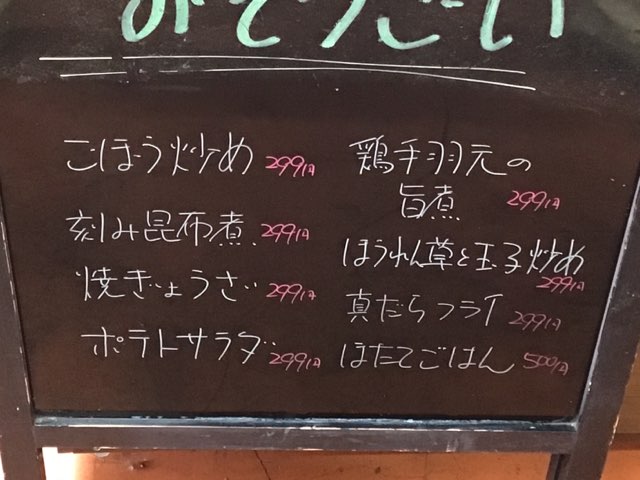 おそうざい
ごぼう炒め 299円
刻み昆布煮 299円
焼きぎょうざ 299円
ポテトサラダ 299円
鶏手羽元の
旨煮 299円
ほうれん草と玉子炒め
299円
真だらフライ 299円
ほたてごはん 500円